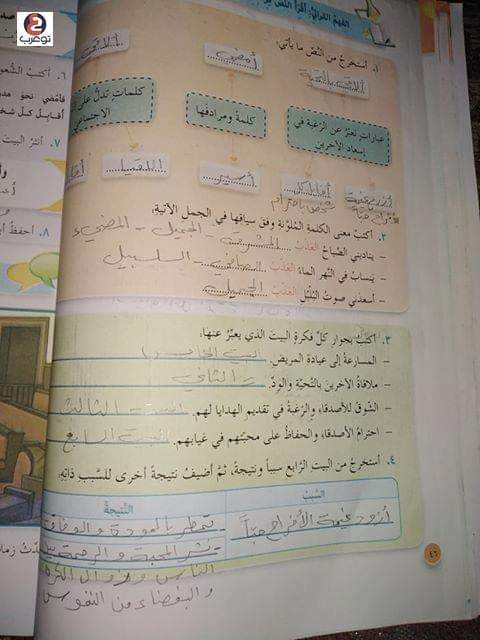 توعرب
الفهمُ القرائيُّ: أقرأُ النّصّ
١. أستخرجُ من النّصّ ما يأتي.
أمضي
عبارات تعبّرُ عن الرّغبة في إسعاد الآخرين
كلمةً ومرادفَها
كلماتٍ تدلُّ على الاجتماعي
أسير
اللقيا
٢. أكتبُ معنى الكلمةِ المُلوَّنةِ وفق سياقِها في الجملِ الآتيةِ:
– يناديني الصَّباحُ العَذْبُ المشرق - الجميل - المضيء
– يَنسابُ في النَّهرِ الماءُ العَذْبُ الصافي - السلسبيل
– أسعدَني صوتُ البُلْبُلِ العَذْبُ الجميل
٣. أكتبُ بجوارِ كلِّ فكرةٍ البيتَ الذي يعبِّرُ عنها:
– المسارعةُ إلى عيادةِ المريضِ. البيت الخامس
– ملاقاةُ الآخرينَ بالتّحيّةِ والودِّ. الثاني
– الشّوقُ للأصدقاءِ والرَّغبةُ في تقديمِ الهدايا لهم. البيت الثالث
– احترامُ الأصدقاءِ والحفاظُ على محبّتهم في غيابهم. البيت الرابع
٤. أستخرجُ من البيت الرّابع سبباً ونتيجةً، ثمَّ أضيفُ نتيجةً أخرى للسّببِ ذاتِه.
السّببُ
النّتيجةُ
أزود غيمة الأفراح حبّاً
تمطر بالمودة والوفاق
نشر المحبة والرحمة بين
الناس وزوال الكره
والبغضاء من النفوس
٤٦
٦. أكتبُ الشّعور
فأمضي نحو
أقابل كلّ
٧. أنثرُ البيت
٨. أحفظُ